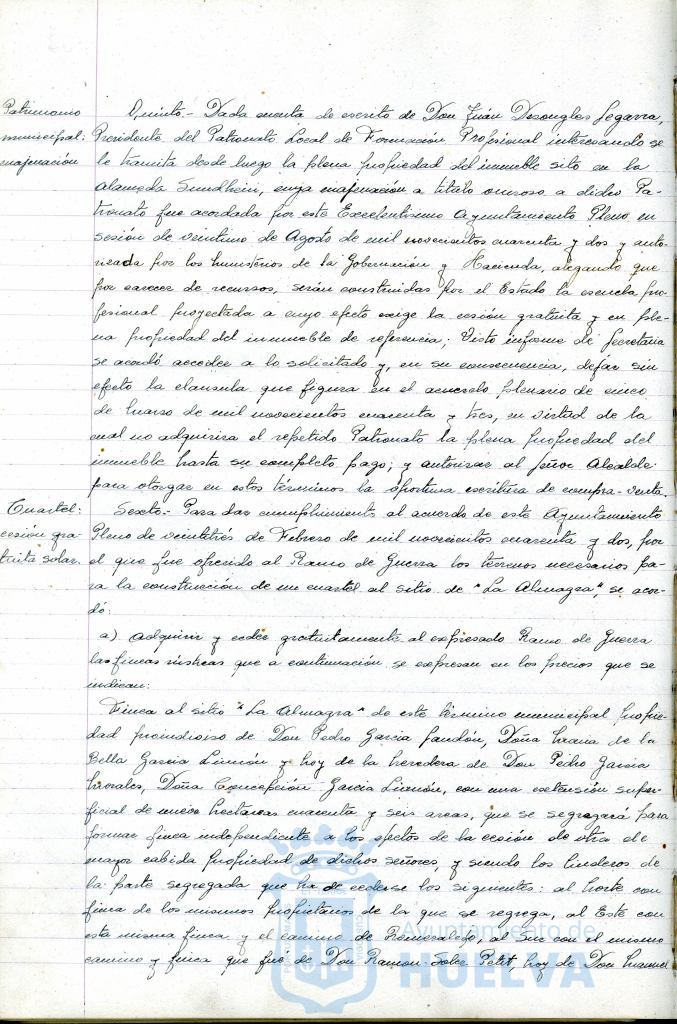 Patrimonio
municipal:
enajenación
Quinto.- Dada cuenta de escrito de Don Juán Desongles Segarra,
Presidente del Patronato Local de Formación Profisional interesando se
le transita desde luego la plena propiedad del inmueble sito en la
Alameda Sundhein, cuya enajenación a titulo oneroso a dicho Pa-
tronato fue acordada por este Excelentísimo Ayuntamiento Pleno en
sesión de veintiuno de Agosto de mil novecientos cuarenta y dos y auto-
rizada por los Ministerios de la Gobernación y Hacienda, alegando que
por carecer de recursos, serán construidas por el Estado la escuela pro-
fesional proyectada a cuyo efecto exige la cesión gratuita y en ple-
na propiedad del inmueble de referencia; Visto informe de Secretaria
se acordó acceder a lo solicitado y, en su consecuencia, dejar sin
efecto la clausula que figura en el acuerdo plenario de cinco
de Marzo de mil novecientos cuarenta y tres, en virtud de la
cual no adquirira el repetido Patronato la plena propiedad del
inmueble hasta su completo pago; y autorizar al Señor Alcalde
para otorgar en estos términos la oportuna escritura de compra-venta.
Cuartel:
cesión gra-
tuita solar.
Sexto.- Para dar cumplimiento al acuerdo de este Ayuntamiento
Pleno de veintitrés de Febrero de mil novecientos cuarenta y dos, por
el que fue ofrecido al Ramo de Guerra los terrenos necesarios pa-
ra la construcción de un cuartel al sitio de "La Almagra", se acor-
dó:
a) Adquirir y ceder gratuitamente al expresado Ramo de Guerra
las fincas rústicas que a continuación se expresan en los precios que se
indican:
Finca al sitio "La Almagra" de este término municipal propie-
dad proindiviso de Don Pedro García Jandón, Doña Maria de la
Bella Garcia Limón y hoy de la heredera de Don Pedro Garcia
Morales, Doña Concepción Garcia Limón, con una extensión super-
ficial de nueve hectareas cuarenta y seis areas, que se segregará para
formar finca independiente a los efectos de la cesión de otra de
mayor cabida propiedad de dichos señores, y siendo los linderos de
la parte segregada que ha de cederse los siguientes: al Norte con
finca de los mismos propietarios de la que se regrega, al Este con
esta misma finca y el camino de Romeralejo, al Sur con el mismo
camino y finca que fué de Don Ramon Petit, hoy de Don Manuel
Ayuntamiento de
HUELVA